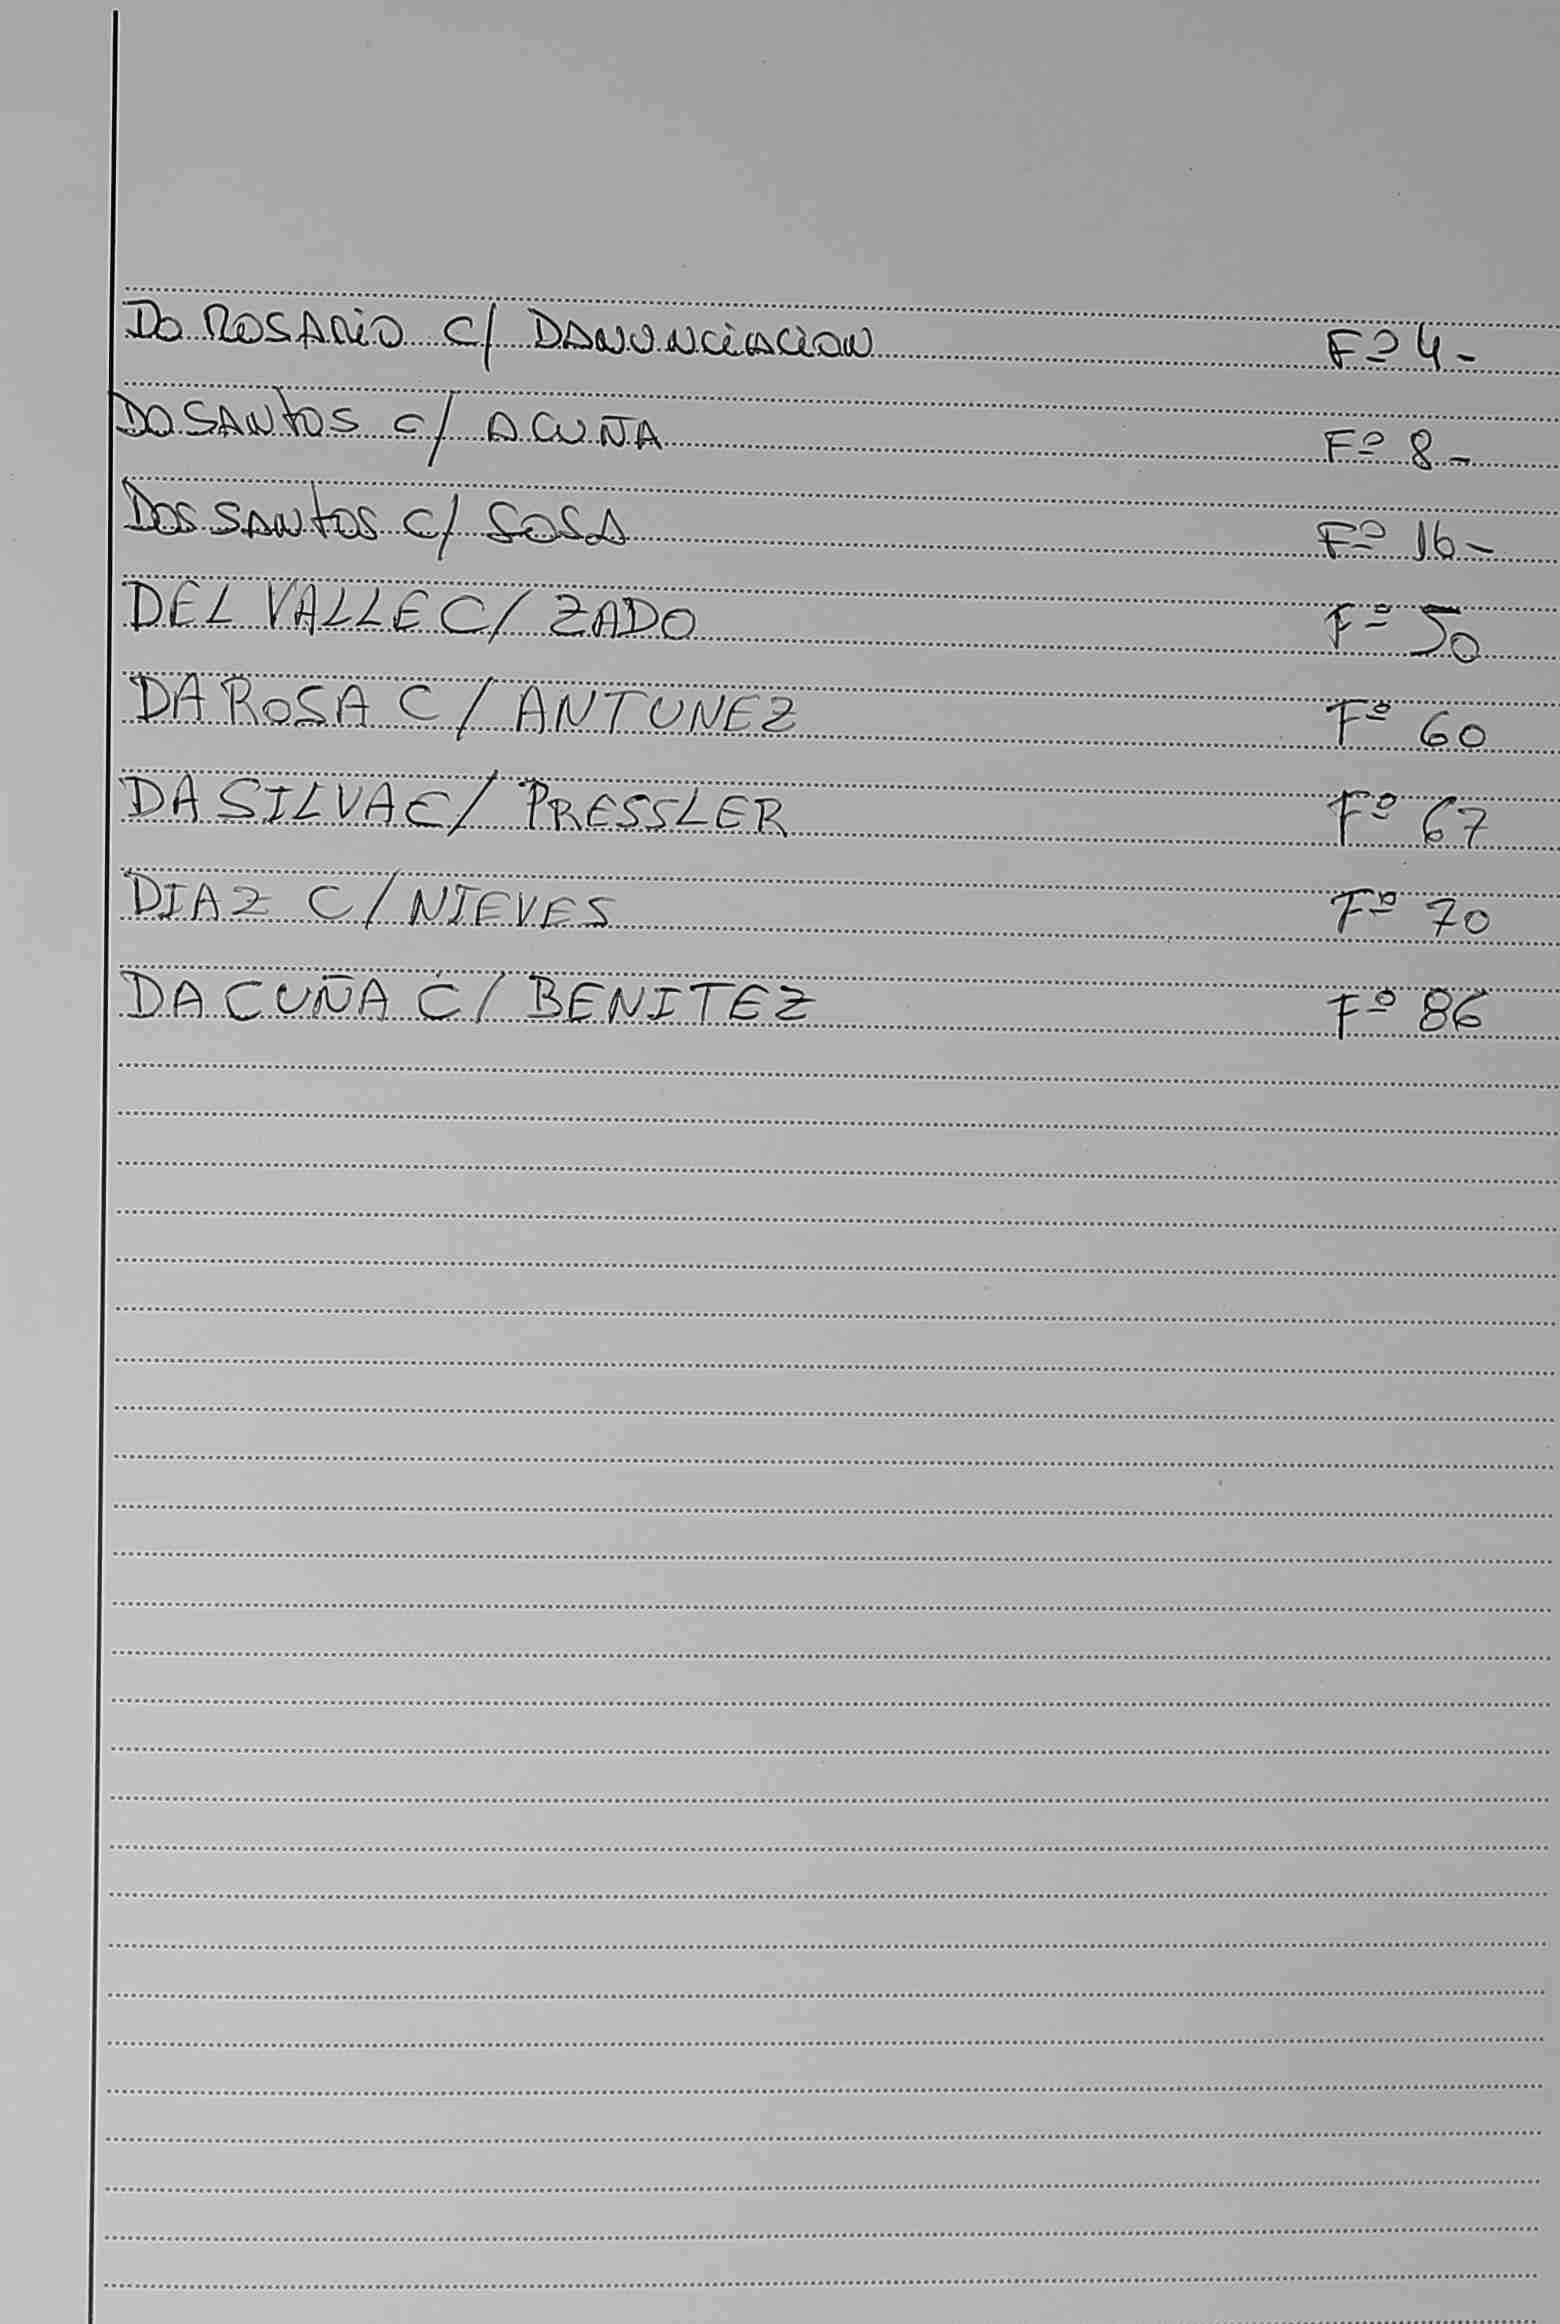 DO ROSARIO C/ DANUNCIACION Fº 4-
DO SANTOS C/ ACUÑA Fº 8-
DOS SANTOS C/ SOSA Fº 16-
DEL VALLE C/ ZADO Fº 50
DA ROSA C/ ANTUNEZ Fº 60
DA SILVA C/ PRESSLER Fº 67
DIAZ C/ NIEVES Fº 70
DA CUÑA C/ BENITEZ Fº 86